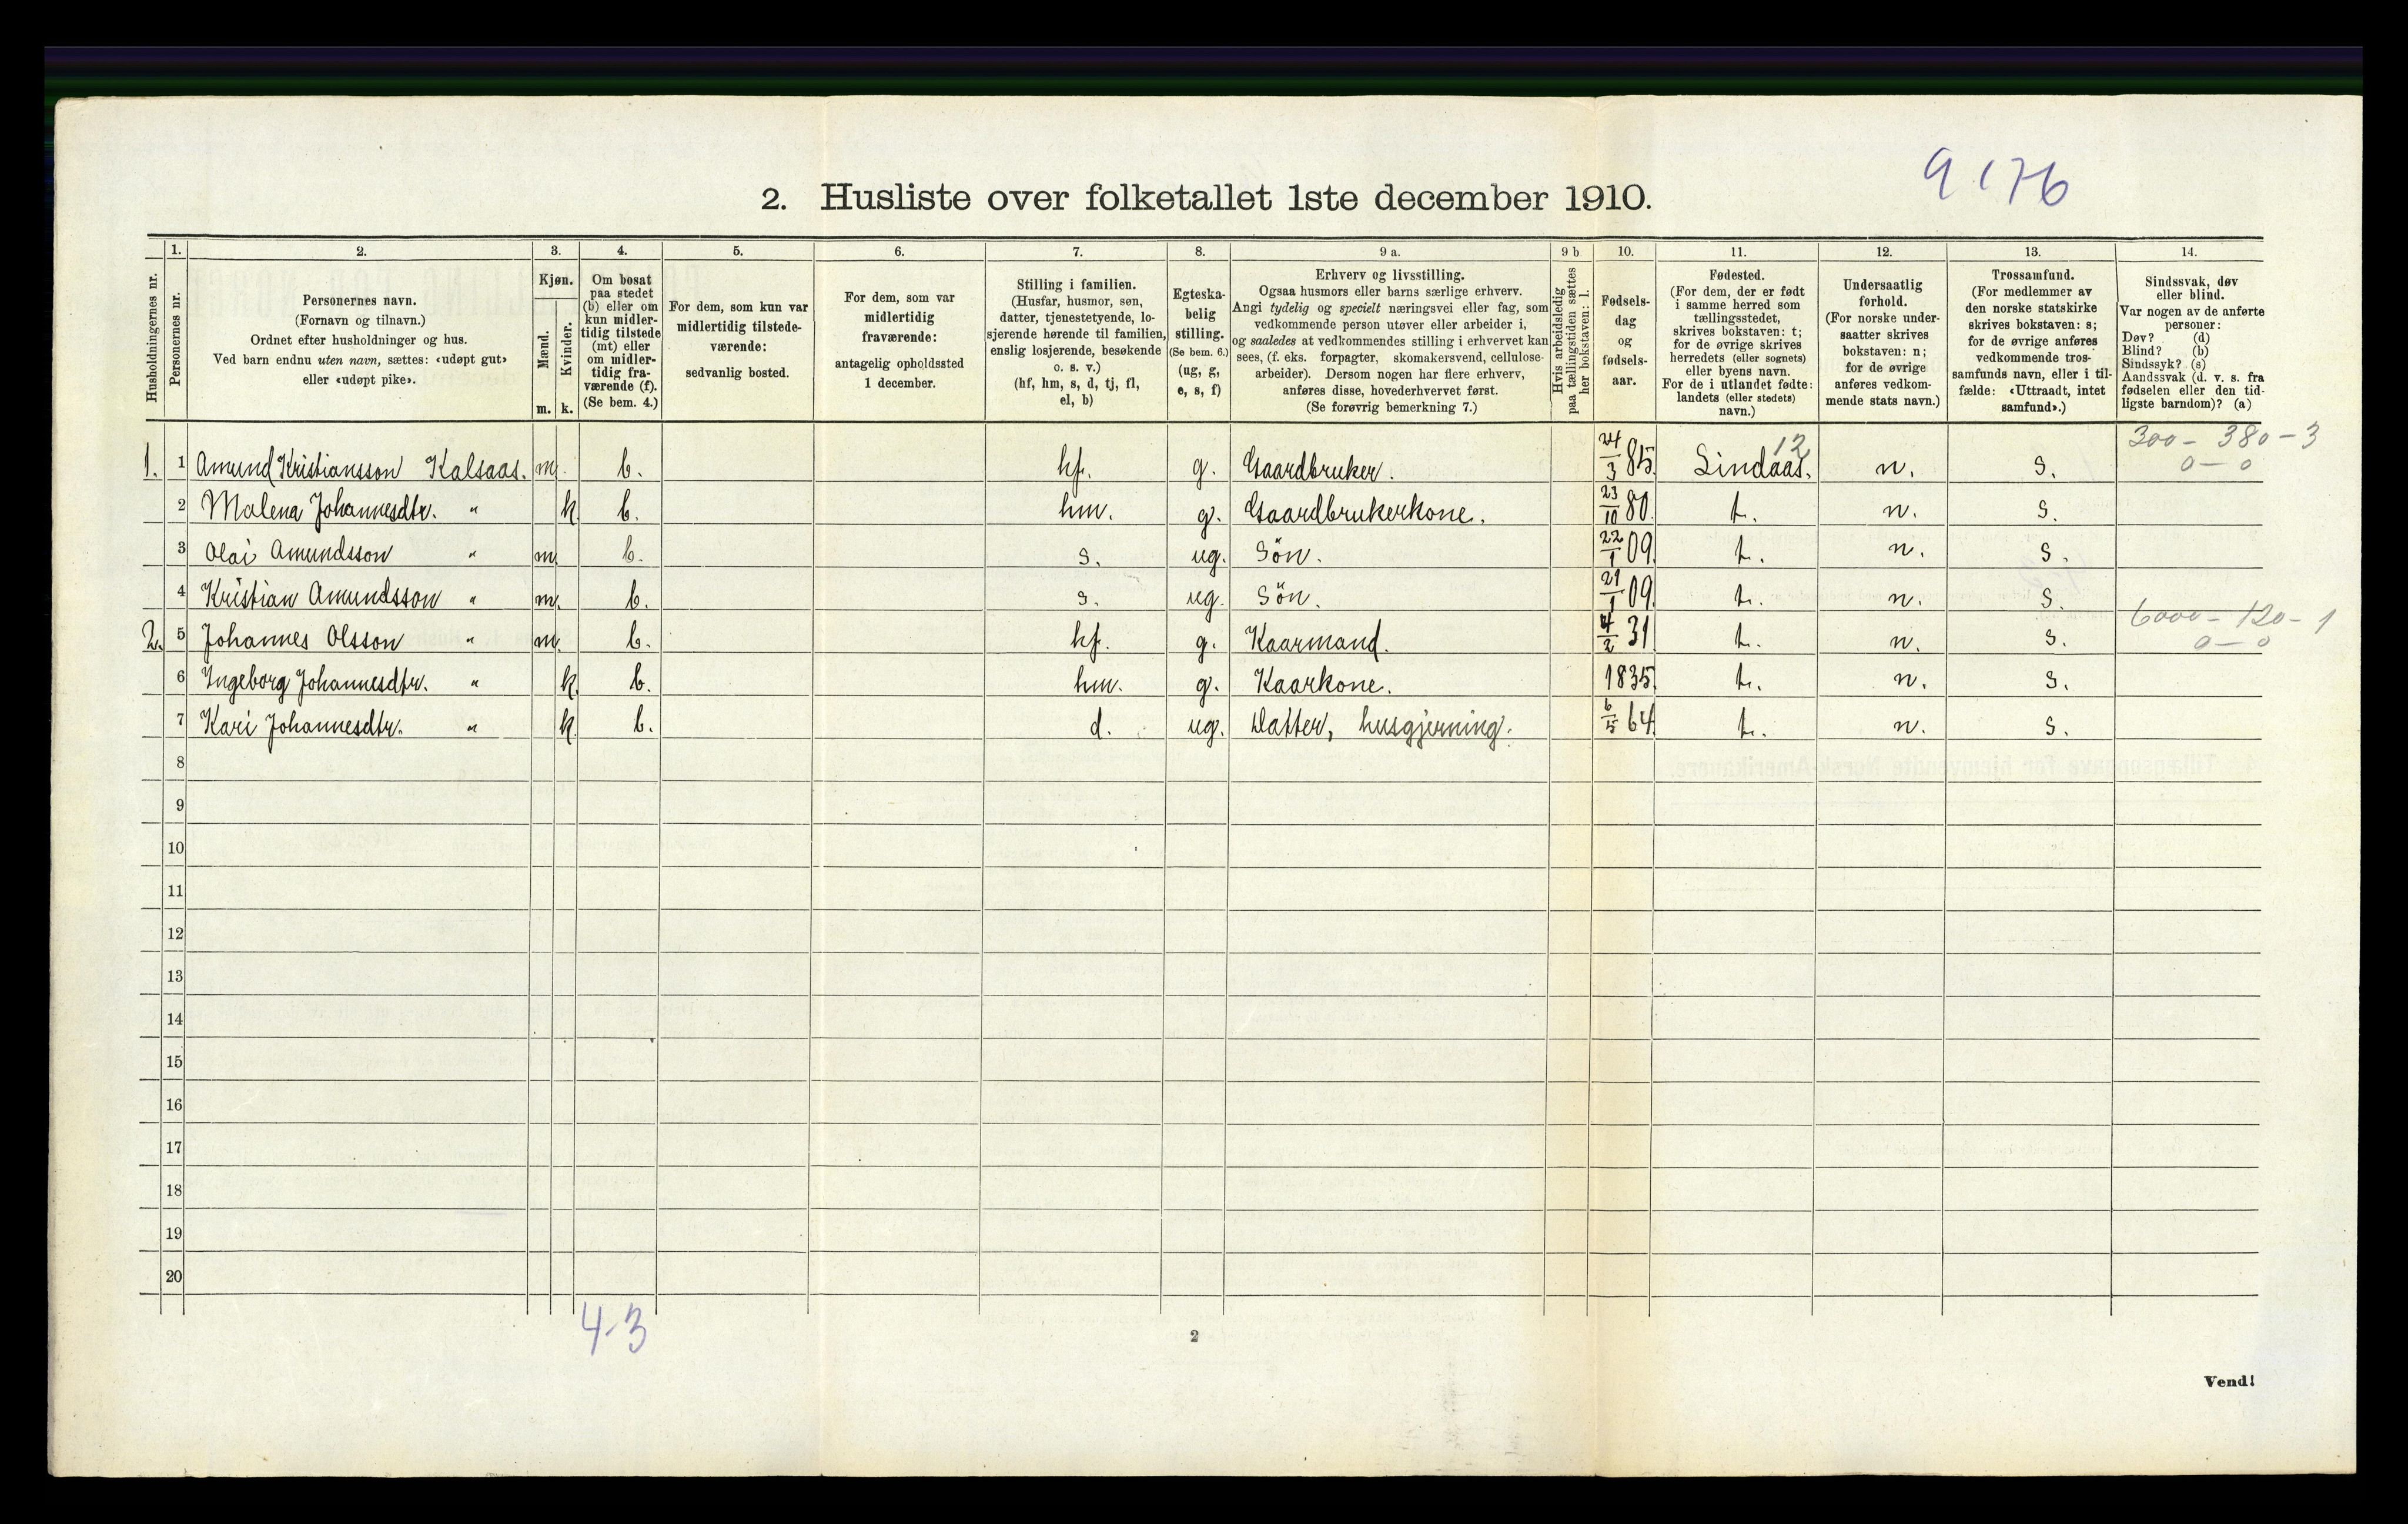 9 176
2. Husliste over folketallet 1ste december 1910.
Husholdningernes nr.
1.
Personernes nr.
2.
Personernes navn.
(Fornavn og tilnavn.)
Ordnet efter husholdninger og hus.
Ved barn endnu uten navn, sættes: «udøpt gut»
eller «udøpt pike».
3.
Kjøn.
Mænd.
Kvinder.
m. k.
4.
Om bosat
paa stedet
(b) eller om
kun midler-
tidig tilstede
(mt) eller
om midler-
tidig fra-
værende (f).
(Se bem. 4.)
5.
For dem, som kun var
midlertidig tilstede-
værende:
sedvanlig bosted.
6.
For dem, som var
midlertidig
fraværende:
antagelig opholdssted
1 december.
7.
Stilling i familien.
(Husfar, husmor, søn,
datter, tjenestetyende, lo-
sjerende hørende til familien,
enslig losjerende, besøkende
o. s. v.)
(hf, hm, s, d, tj, fl,
el, b)
8.
Egteska-
belig
stilling.
(Se bem. 6.)
(ug, g,
e, s, f)
9 a.
Erhverv og livsstilling.
Ogsaa husmors eller barns særlige erhverv.
Angi tydelig og specielt næringsvei eller fag, som
vedkommende person utøver eller arbeider i,
og saaledes at vedkommendes stilling i erhvervet kan
sees, (f. eks. forpagter, skomakersvend, cellulose-
arbeider). Dersom nogen har flere erhverv,
anføres disse, hovederhvervet først.
(Se forøvrig bemerkning 7.)
9 b
Hvis arbeidsledig
paa tællingstiden sættes
her bokstaven: l.
10.
Fødsels-
dag
og
fødsels-
aar.
11.
Fødested.
(For dem, der er født
i samme herred som
tællingsstedet,
skrives bokstaven: t;
for de øvrige skrives
herredets (eller sognets)
eller byens navn.
For de i utlandet fødte:
landets (eller stedets)
navn.)
12.
Undersaatlig
forhold.
(For norske under-
saatter skrives
bokstaven: n;
for de øvrige
anføres vedkom-
mende stats navn.)
13.
Trossamfund.
(For medlemmer av
den norske statskirke
skrives bokstaven: s;
for de øvrige anføres
vedkommende tros-
samfunds navn, eller i til-
fælde: «Uttraadt, intet
samfund».)
14.
Sindssvak, døv
eller blind.
Var nogen av de anførte
personer:
Døv? (d)
Blind? (b)
Sindssyk? (s)
Aandssvak (d. v. s. fra
fødselen eller den tid-
ligste barndom)? (a)
12 300 - 380 - 3
0 - 0
1. 1 Amund Kristiansson Kalsaas. m. b. hf. g. Gaardbruker. 24/3 85. Lindaas. n. s.
2 Malena Johannesdtr. " k. b. hm. g. Gaardbrukerkone. 23/10 80. t. n. s.
3 Olai Amundsson " m. b. s. ug. Sön. 22/1 09. t. n. s.
4 Kristian Amundsson " m. b. s. ug. Sön. 21/1 09. t. n. s.
6000 - 120 - 1
0 - 0
2. 5 Johannes Olsson " m. b. hf. g. Kaarmand. 4/2 31 t. n. s.
6 Ingeborg Johannesdtr. " k. b. hm. g. Kaarkone. 1835. t. n. s.
7 Kari Johannesdtr. " k. b. d. ug. Datter, husgjerning. 6/5 64. t. n. s.
8
9
10
11
12
13
14
15
16
17
18
19
20
4-3
2
Vend!